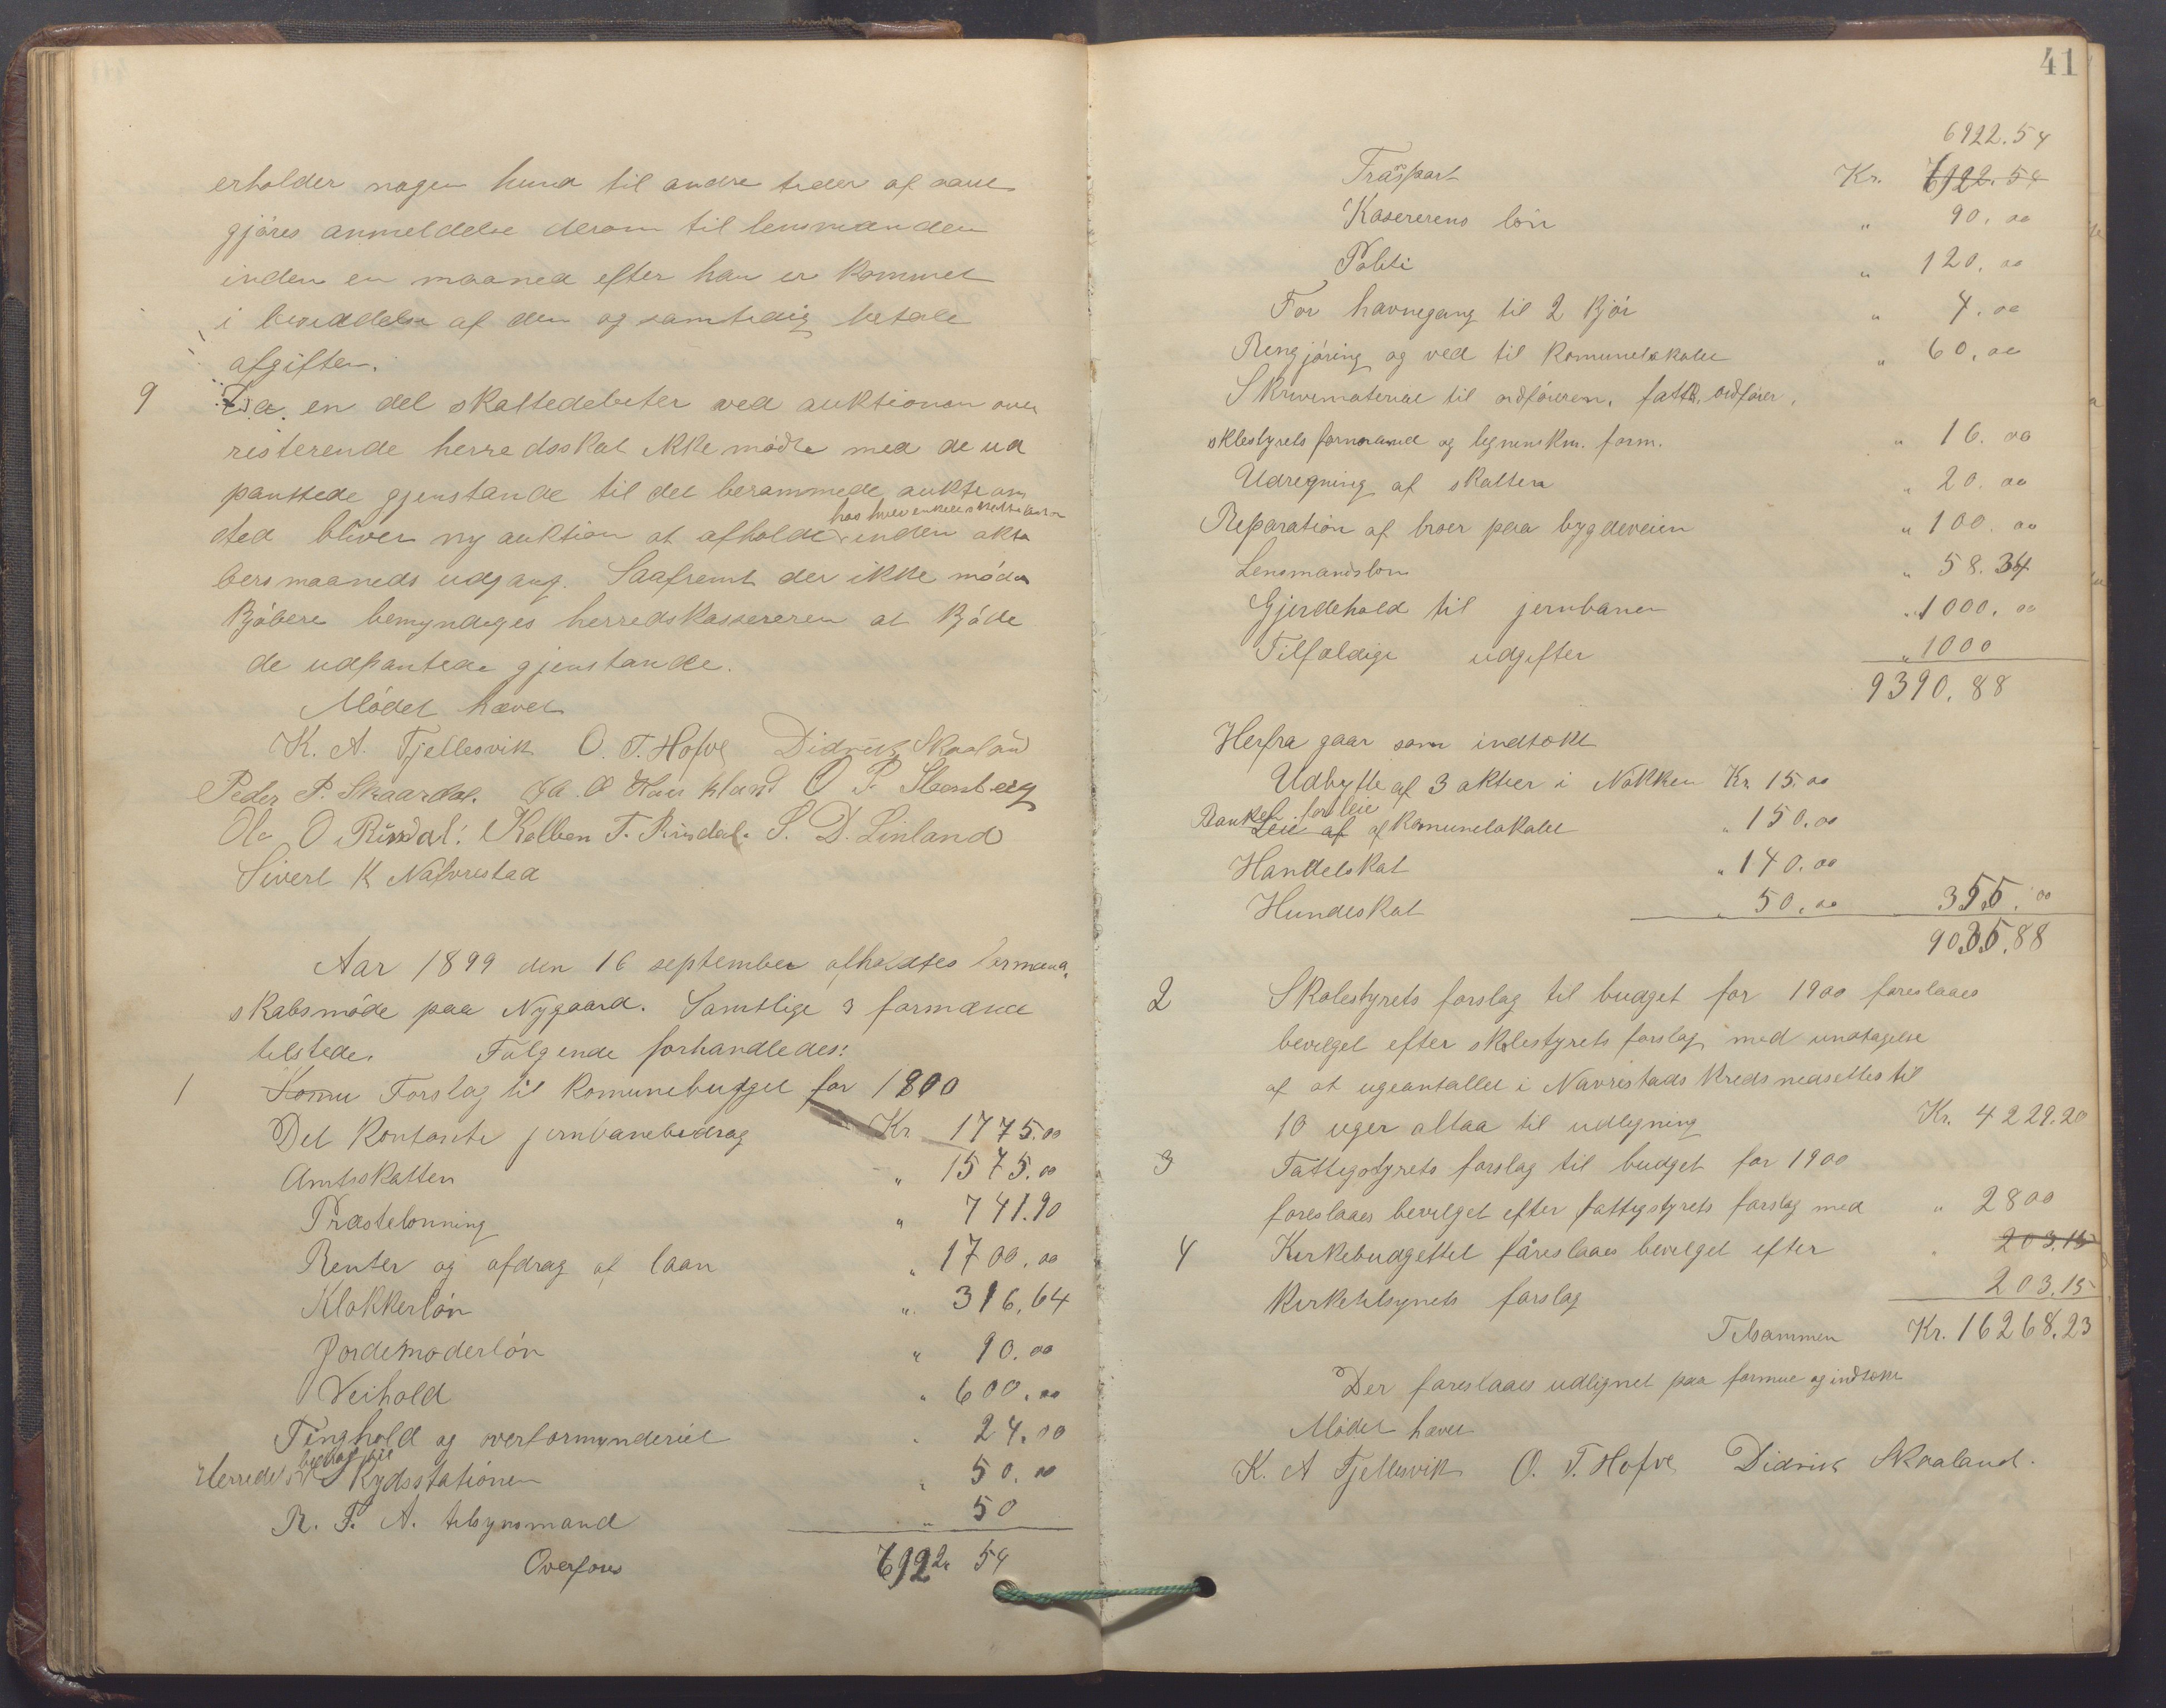 erholder nogen hund til andre tider af aaret
gjøres anmeldelse derom til lensmanden
inden en maaned efter han er kommet
i besiddelse af den og samtidig betale
afgiften.
9 Da en del skattedebiter ved auktionen over
resterende herredsskat ikke mødte med de ud
pantede gjenstande til det berammede auktions
hos hver enkelt
sted bliver ny auktion at afholde inden okto
bersmaaneds udgang. Saafremt der ikke møder
kjøbere bemyndiges herredskassereren at kjøbe
de udpantede gjenstande.
Mødet hævet
K. A. Fjellesvik O. T. Hofve Didrik Skaaland
Peder P. Skaardal. O P. Steensberg
Ola O. Rinsdal. Kolben T. Rinsdal. S. D. Linland
Sivert K Nafvrestad
Aar 1899 den 16 september afholdtes formand
skabsmøde paa Nygaard. Samtlige 3 formænd
tilstede. Følgende forhandledes:
1 Komu Forslag til komunebudget for 1900
Det kontante jernbanebidrag Kr 1775.00
Amtsskatten " 1575.00
Præstelønning " 741.90
Renter og afdrag af laan " 1700.00
Klokkerløn " 316,64
Jordemoderløn " 90.00
Veihold " 600.00
Tinghold og overformynderiet " 24.00
bidrag til
Herredets Skydsstationer " 50.00
R. F. A. tilsynsmand " 50
Overføres 6922 54
41
6922.54
Trasport Kr. 6922.54
Kasererens løn " 90.00
Politi " 120.00
For havnegang til 2 kjør " 4.00
Rengjøring og ved til komunelokalet " 60,00
Skrivematerial til ordføreren, fattk. ordfører,
sklestyrets formand og lignensk. form. " 16.00
Udregning af skatten " 20.00
Reparation af broer paa bygdeveien " 100.00
Lensmandsløn " 58.34
Gjerdehold til jernbanen " 1000.00
Tilfældige udgifter " 1000
9390.88
Herfra gaar som indtækt
Udbytte af 3 aktier i Nøkken Kr. 15.00
Banken for leie
Leie af af komunelokalet " 150.00
Handelskat " 140.00
Hundeskat " 50.00 355.00
9035.88
2 Skolestyrets forslag til budget for 1900 foreslaaes
bevilget efter skolestyrets forslag med undtagelse
af at ugeantallet i Navrestads kreds nedsettes til
10 uger altaa til udligning Kr. 4229.20
3 Fattigstyrets forslag til budget for 1900
foreslaaes bevilget efter fattigstyrets forslag med " 2800
4 Kirkebudgettet føreslaaes bevilget efter " 203.15
kirketilsynets forslag 203.15
Tilsammen Kr. 16268.23
Der foreslaaes udlignet paa formue og indtækt
Mødet hævet
K. A Fjellesvik O. T. Hofve Didrik Skaaland.